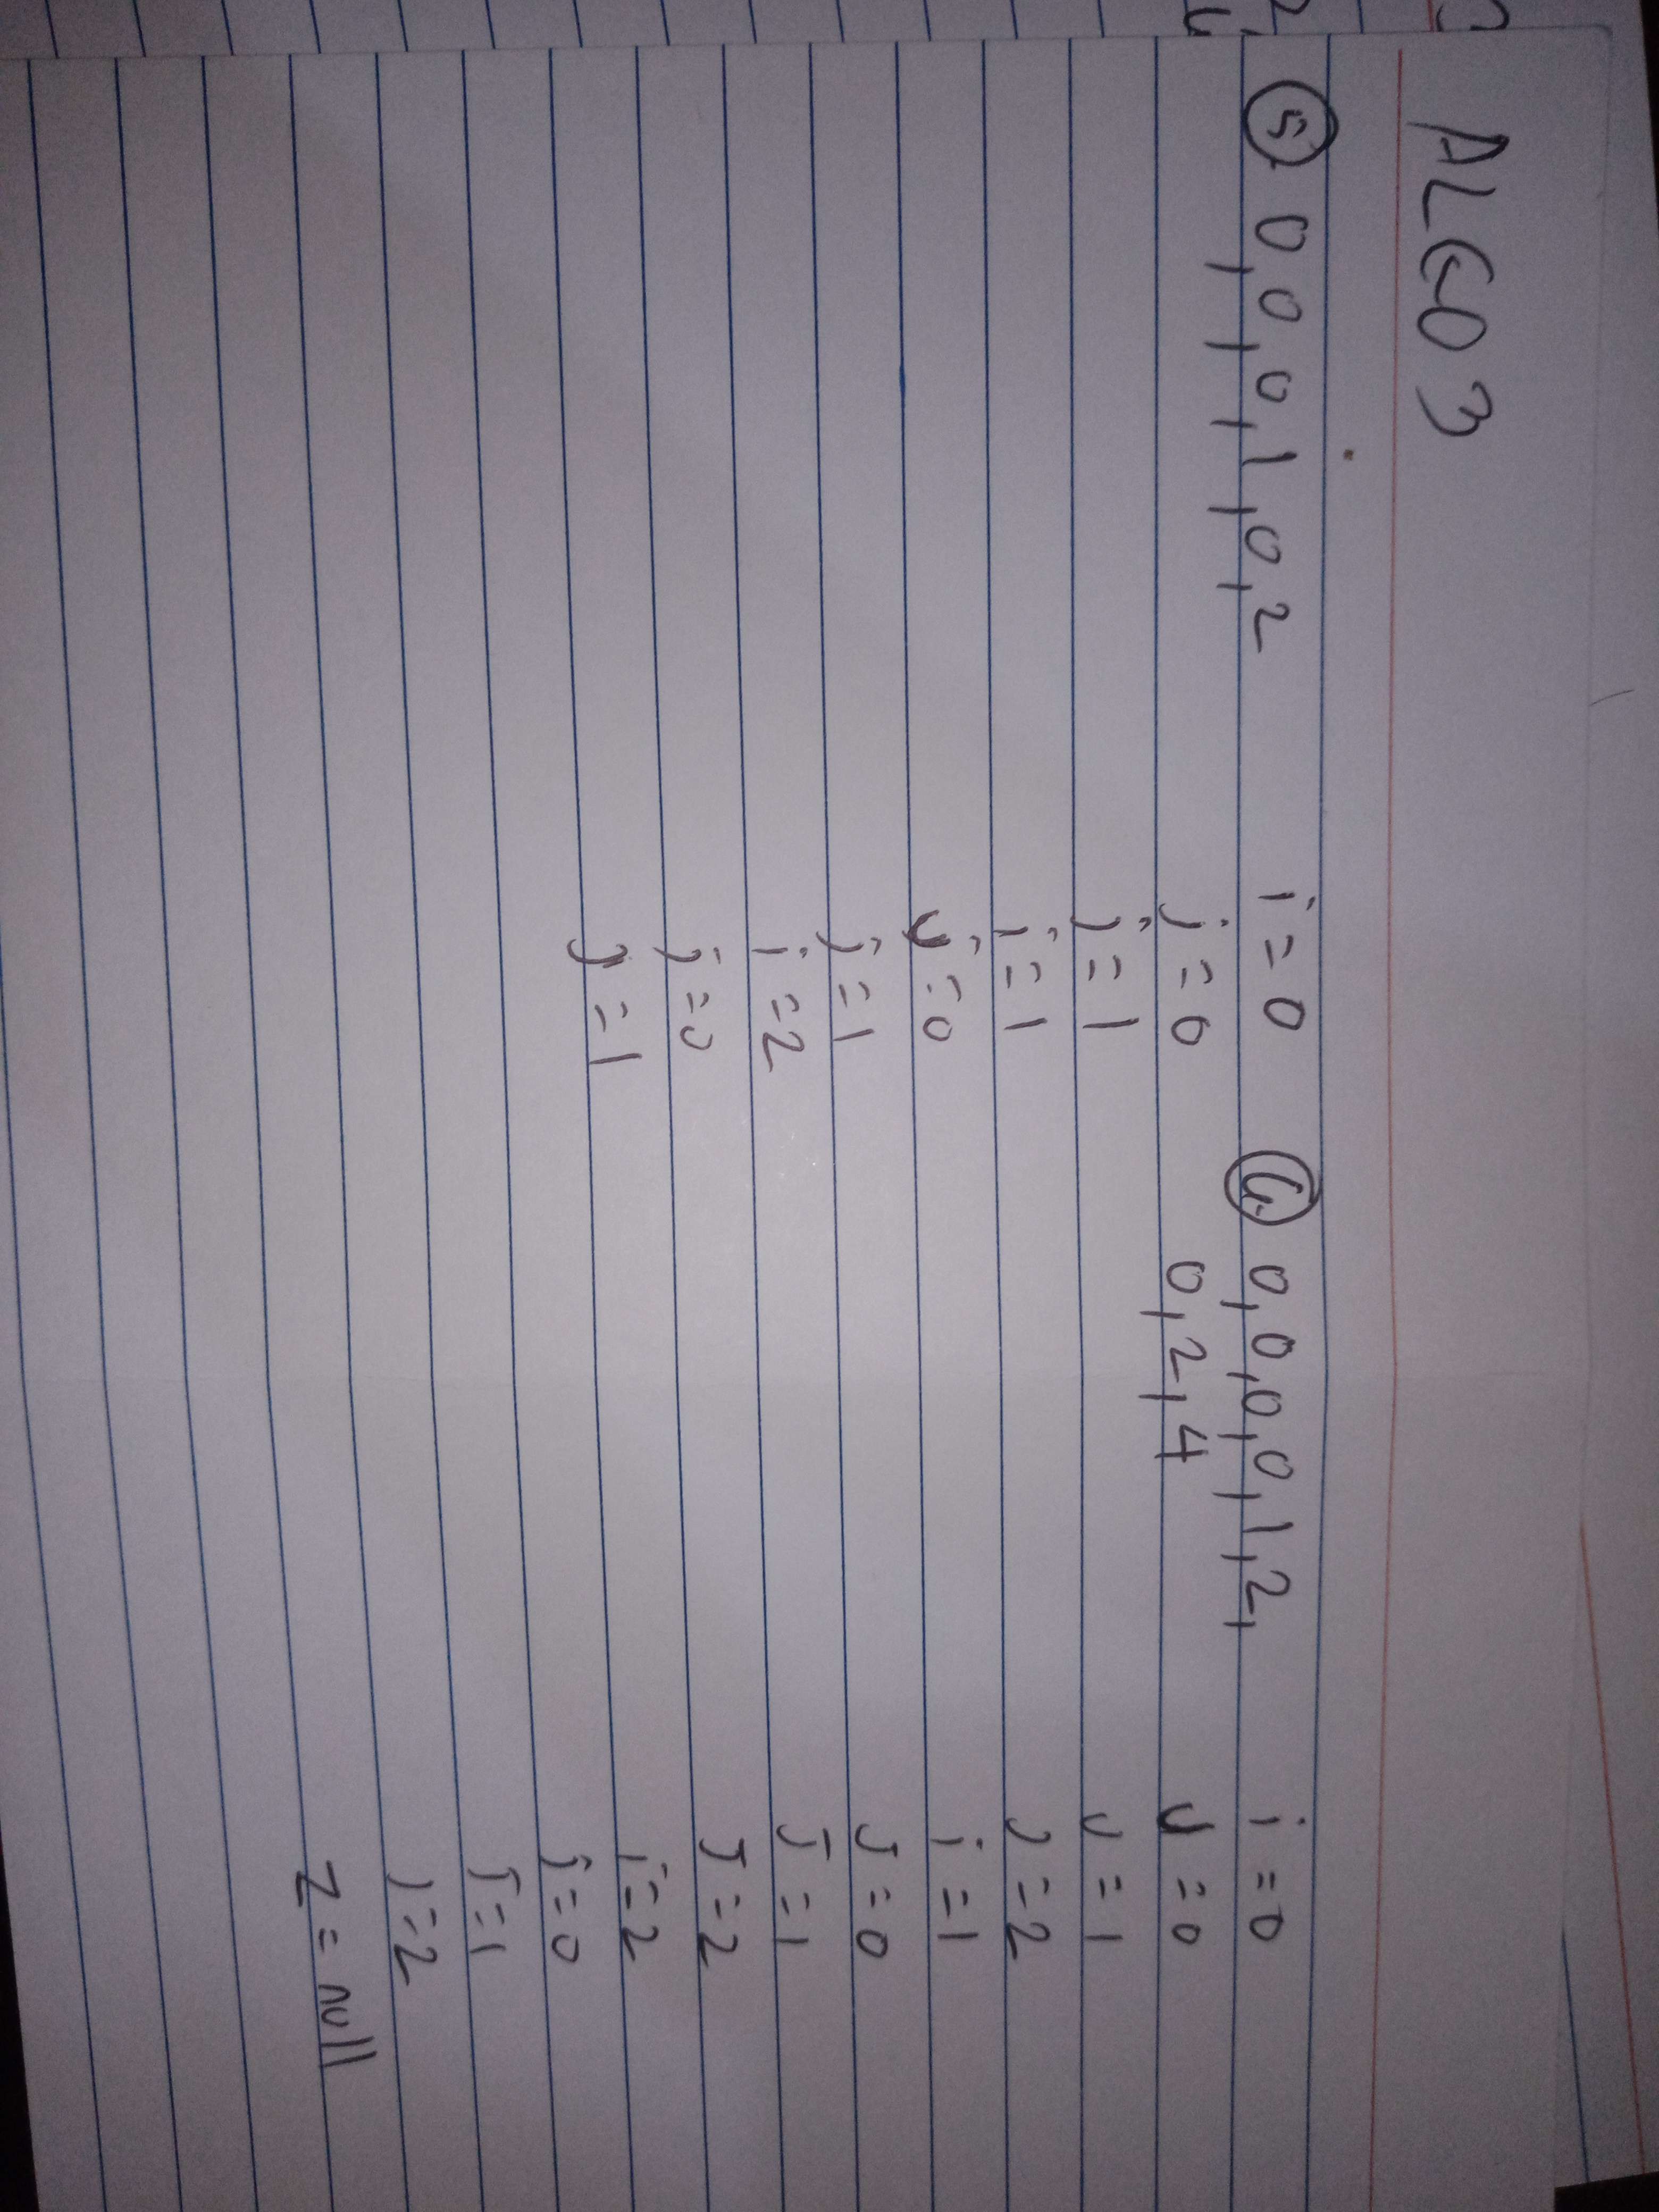 ALGO 3
5. 0, 0, 0, 1, 0, 2
i = 0
j = 0
j = 1
i = 1
j = 0
j = 1
i = 2
j = 0
j = 1
6. 0, 0, 0, 0, 1, 2,
0, 2, 4
i = 0
j = 0
j = 1
j = 2
i = 1
j = 0
j = 1
j = 2
i = 2
j = 0
j = 1
j = 2
z = null